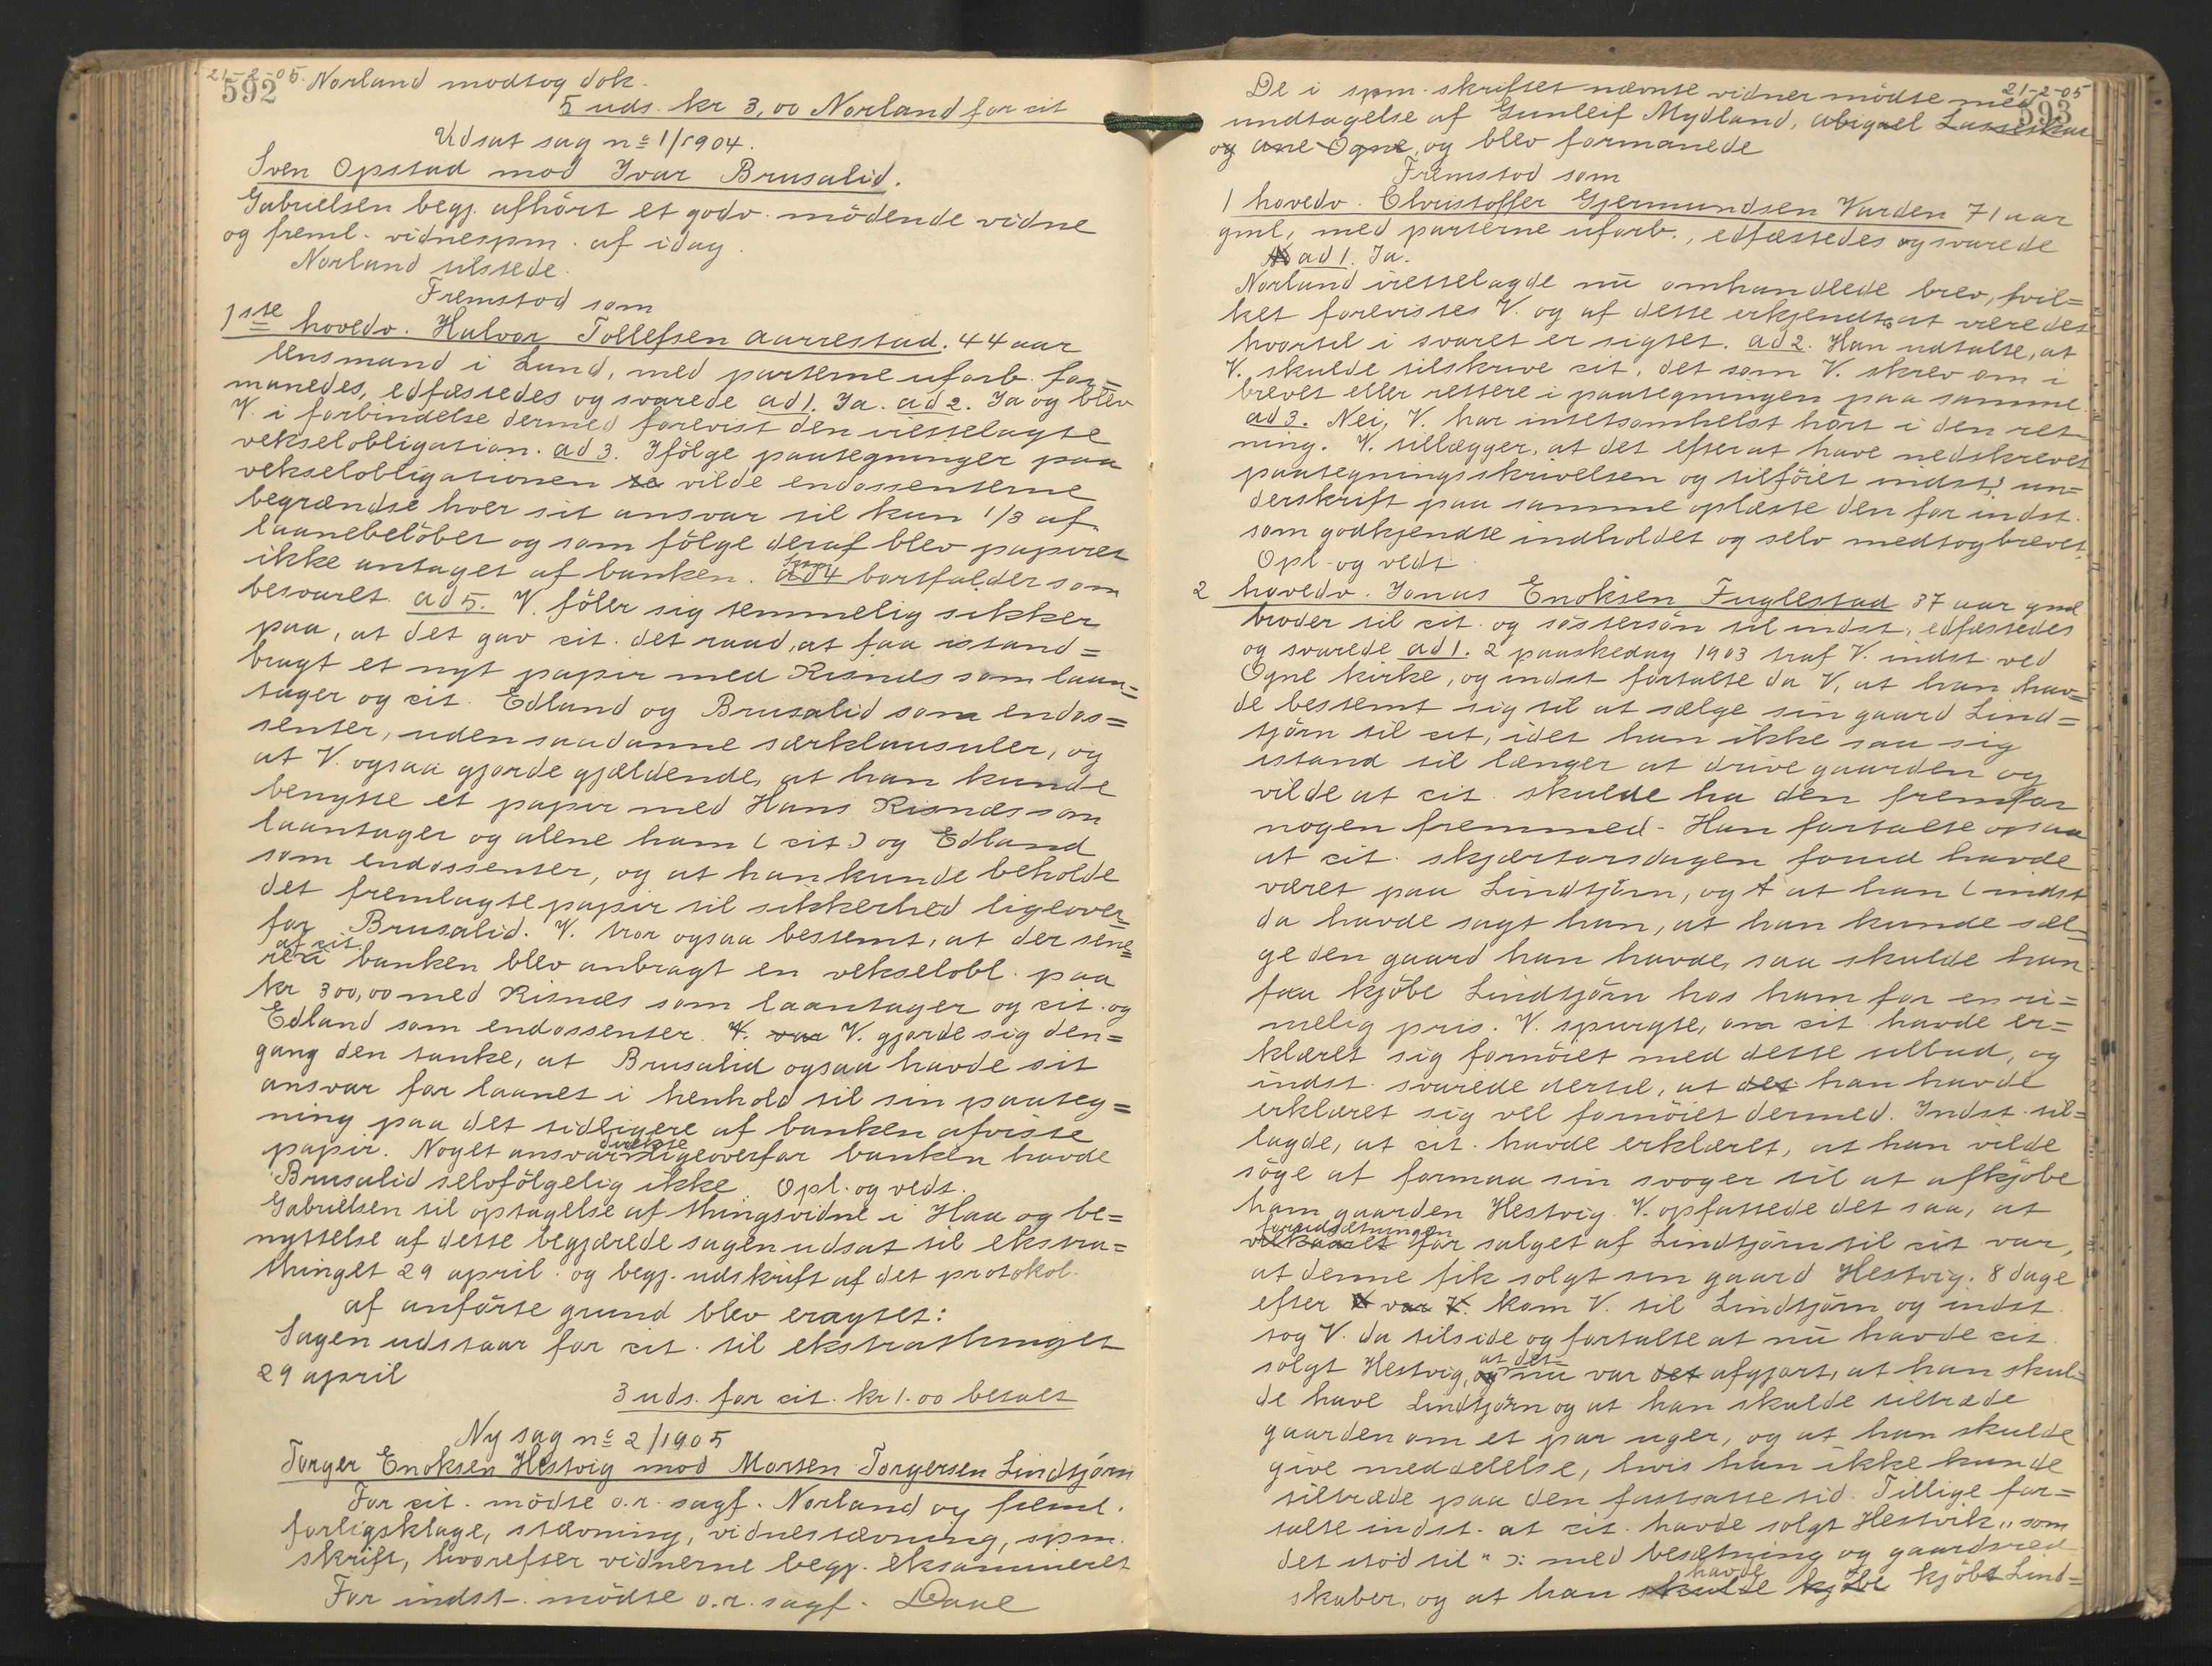 21-2-05. Norland modtog dok.
592
5 uds. kr 3,00 Norland for cit
Udsat sag no 1/1904.
Sven Opstad mod Ivar Brusalid.
Gabrielsen begj. afhört et godv. mödende vidne
og freml. vidnespm. af idag.
Norland tilstede.
Fremstod som
1ste hovedv. Halvor Tollefsen Aarrestad. 44 aar
lensmand i Lund, med parterne ufarb. for=
manedes, edfæstedes og svarede ad 1. Ja. ad 2. Ja og blev
V. i forbindelse dermed forevist den irettelagte
vekselobligation. ad 3. Ifölge paategninger paa
vekselobligationen vilde endossenterne
begrændse hver sit ansvar til kun 1/3 af
laanebelöbet og som fölge deraf blev papiret
ikke antaget af banken. spm 4 bortfalder som
besvaret. ad 5. V. föler sig temmelig sikker
paa, at det gav cit. det raad, at faa istand=
bragt et nyt papir med Risnæs som laan=
tager og cit. Edland og Brusalid som endos=
senter, uden saadanne særklausuler, og
at V. ogsaa gjorde gjældende, at han kunde
benytte et papir med Hans Risnæs som
laantager og alene ham (cit) og Edland
som endossenter, og at han kunde beholde
det fremlagte papir til sikkerhed ligeover=
for Brusalid. V. tror ogsaa bestemt, at der sene=
af cit.
re i banken blev anbragt en vekselobl. paa
kr 300,00 med Risnæs som laantager og cit. og
Edland som endossenter. V. var V. gjorde sig den=
gang den tanke, at Brusalid ogsaa havde sit
ansvar for laanet i henhold til sin paateg=
ning paa det tidligere af banken afviste
direkte
papir. Noget ansvar ligeoverfor banken havde
Brusalid selvfölgelig ikke. Opl. og vedt.
Gabrielsen til optagelse af thingsvidne i Haa og be=
nyttelse af dette begjærede sagen udsat til ekstra=
thinget 29 april. og begj. udskrift af det protokol.
af anförte grund blev eragtet:
Sagen udstaar for cit. til ekstrathinget
29 april
3 uds. for cit. kr 1.00 betalt
Ny sag no 2/1905
Torger Enoksen Hestvig mod Morten Torgersen Lindtjörn
For cit. mödte o.r. sagf. Norland og freml.
forligsklage, stævning, vidnestævning, spm.
skrift, hvorefter vidnerne begj. eksamineret
For indst. mödte o.r. sagf. Daae
21-2-05
593
De i spm. skriftet nævnte vidner mödte med
undtagelse af Gunleif Mydland, Abigael Lasseskar
og Ane Ogne, og blev formanede
Fremstod som
1 hovedv. Christoffer Gjermundsen Varden 71 aar
gml, med parterne ufarb., edfæstedes og svarede
ad 1. Ja.
Norland irettelagde nu omhandlede brev, hvil=
ket forevistes V. og af dette erkjendtes at være det
hvortil i svaret er sigtet. ad 2. Han udtalte, at
V. skulde tilskrive cit. det som V. skrev om i
brevet eller rettere i paategningen paa samme
ad 3. Nei, V. har intetsomhelst hört i den ret
ning. V. tillægger, at det efter at have nedskrevet
paategningsskrivelsen og tilföiet indst's un=
derskrift paa samme oplæste den for indst.
som godkjendte indholdet og selv medtog brevet.
Opl. og vedt
2 hovedv. Jonas Enoksen Fuglestad 37 aar gml
broder til cit. og söstersön til indst, edfæstedes
og svarede ad 1. 2 paaskedag 1903 traf V. indst ved
Ogne kirke, og indst fortalte da V, at han hav=
de bestemt sig til at sælge sin gaard Lind=
tjörn til cit, idet han ikke saa sig
istand til længer at drive gaarden og
vilde at cit. skulde ha den fremfor
nogen fremmed. Han fortalte ogsaa
at cit. skjærtorsdagen forud havde
været paa Lindtjörn, og at han (indst
da havde sagt han, at han kunde sæl=
ge den gaard han havde, saa skulde han
faa kjöbe Lindtjörn hos ham for en ri=
melig pris. V. spurgte, om cit. havde er=
klæret sig fornöiet med dette tilbud, og
indst. svarede dertil, at det han havde
erklæret sig vel fornöiet dermed. Indst. til=
lagde, at cit. havde erklæret, at han vilde
söge at formaa sin svoger til at afkjöbe
ham gaarden Hestvig. V. opfattede det saa, at
forudsætningen
vilkaaret for salget af Lindtjörn til cit var,
at denne fik solgt sin gaard Hestvig. 8 dage
efter V var V. kom V. til Lindtjörn og indst
tog V. da tilside og fortalte at nu havde cit
at det
solgt Hestvig, og nu var det afgjort, at han skul=
de have Lindtjörn og at han skulde tiltræde
gaarden om et par uger, og at han skulde
give meddelelse, hvis han ikke kunde
tiltræde paa den fastsatte tid. Tillige for=
talte indst. at cit. havde solgt Hestvik „som
det stod til" ɔ: med besætning og gaardsred
havde
skaber, og at han skulde kjöbe kjöbt Lind=